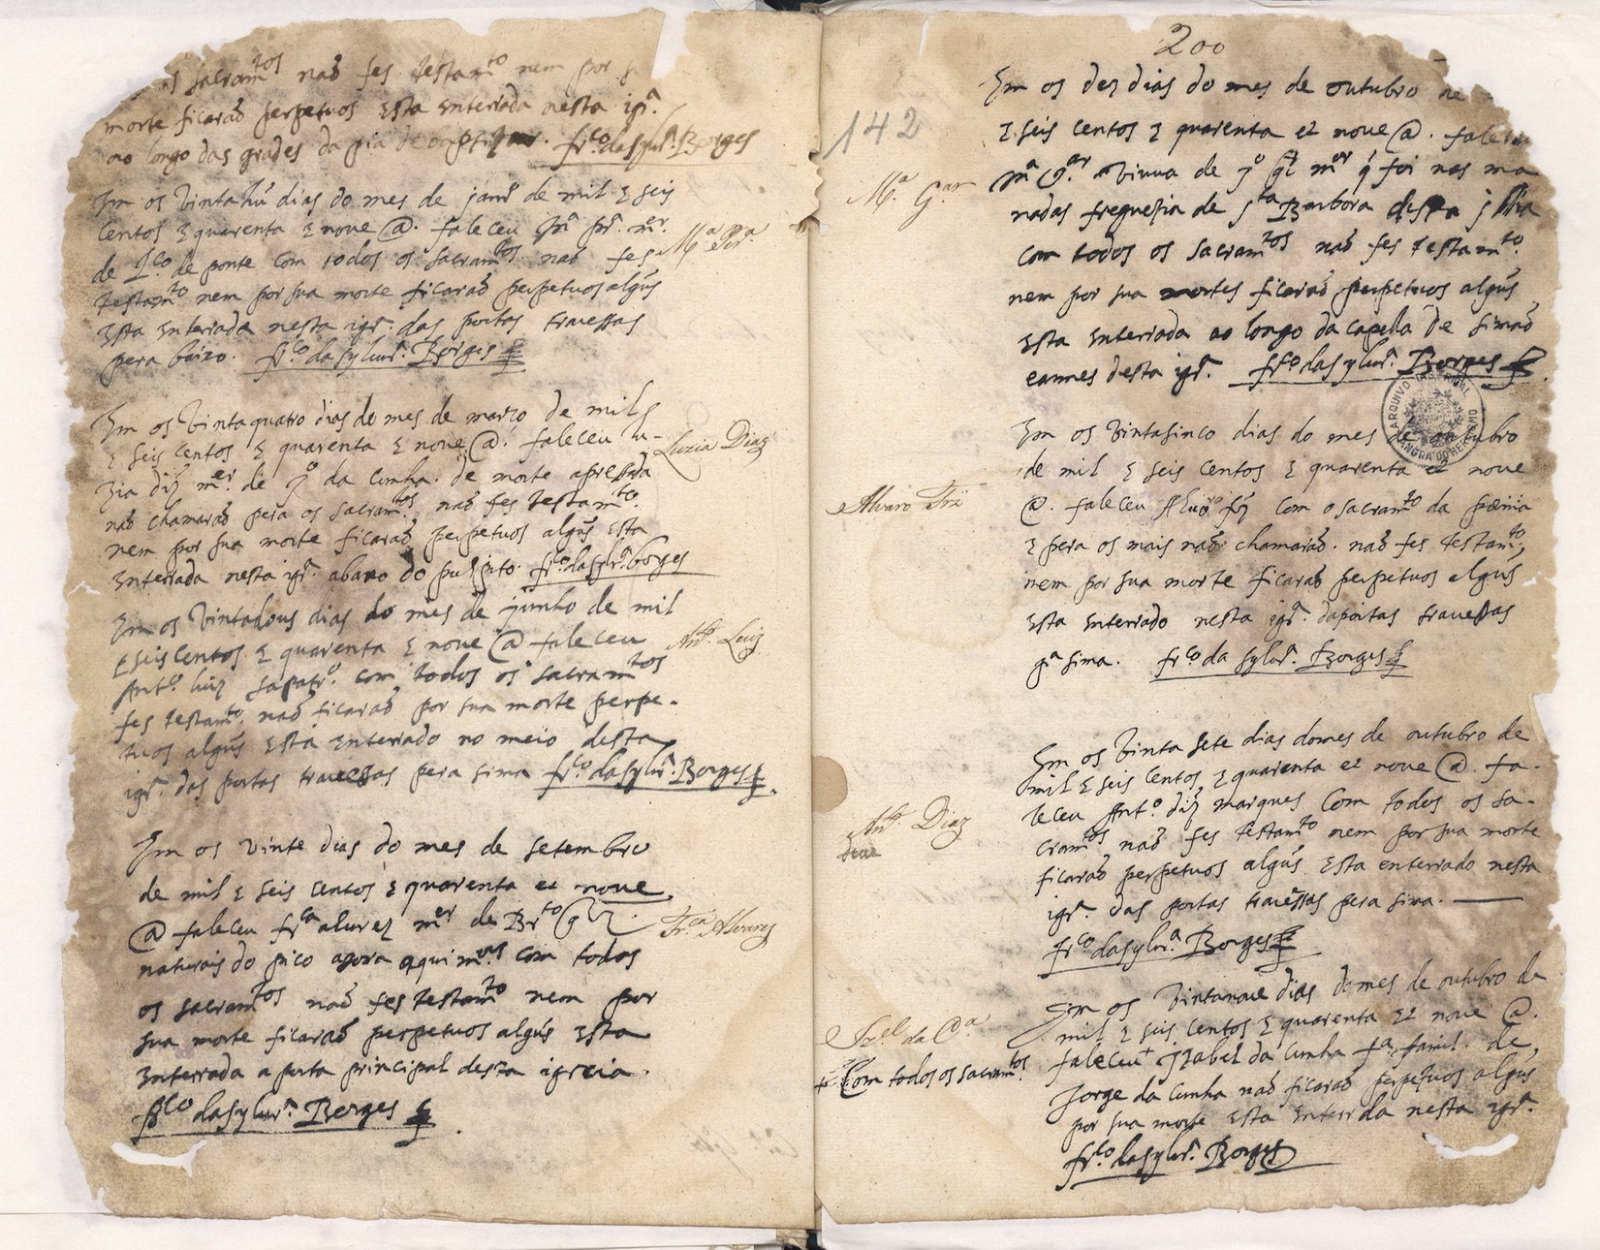 os sacramtos naõ fes testamto nem por s
morte ficaraõ perpetuos esta enterrada nesta igra
ao longo das grades da pia de baptizar. frco. da sylvra. Borges
Em os vintahũ dias do mes de janro de mil e seis
centos e quarenta e nove @. faleceu Ma pra. mer.
Ma Pra.
de de ponte com todos os sacramtos naõ fes
testamto nem por sua morte ficaraõ perpetuos algũs
esta enterrada nesta igra. das portas travessas
pera baixo. frco. da sylvra. Borges
Em os vintaquatro dias do mes de marzo de mil
e seis centos e quarenta e nove @. faleceu lu-
Luzia Diaz
zia diz mer. de Jo da cunha. de morte apressada
naõ chamaraõ pera os sacramtos. naõ fes testamto.
nem por sua morte ficaraõ perpetuos algũs esta
enterrada nesta igra. abaxo do pulpito. frco. da sylra. borges
Em os vintadous dias do mes de junho de mil
e seis centos e quarenta e nove @ faleceu
Anto. Luiz
Anto. luiz sapatro. com todos os sacramtos
fes testamto. naõ ficaraõ por sua morte perpe-
tuos algũs esta enterrado no meio desta
igra. das portas travessas pera sima frco. da sylvra. Borges
Em os vinte dias do mes de setembro
de mil e seis centos e quarenta et nove
@ faleceu frca alvrez mer de Brto
Frca Alvares
naturais do pico agora aqui mres com todos
os sacramtos naõ fes testamto nem por
sua morte ficaraõ perpetuos algũs esta
enterrada a porta principal desta igreia.
frco da sylvra. Borges
200
142
Em os dez dias do mes de outubro de
e seis centos e quarenta et nove @. faleceu
Ma. Gar
Ma Gar viuva de Jo gl mor q foi nas ma
nadas freguezia de sta Barbora desta jlha
com todos os sacramtos naõ fes testamto.
nem por sua mortes ficaraõ perpetuos algũs
esta enterrada ao longo da capella de simaõ
eannes desta igra. frco da sylvra. Borges
ARQUIVO
ANGRA DO HEROISMO
Em os vintasinco dias do mes de outubro
de mil e seis centos e quarenta et nove
Alvaro
@. faleceu Alvro com o sacramto da
e pera os mais naõ chamaraõ. naõ fes testamto,
nem por sua morte ficaraõ perpetuos algũs
esta enterrado nesta igra. daportas travessas
pa sima. frco da sylvra. Borges
Em os vinta sete dias domes de outubro de
mil e seis centos e quarenta et nove @. fa-
Anto. Diaz
leceu Anto. diz marques com todos os sa-
cramtos naõ fes testamto nem por sua morte
ficaraõ perpetuos algũs esta enterrado nesta
igra. das portas travessas pera sima.
frco da sylvra Borges
Em os vintanove dias domes de outubro de
mil e seis centos e quarenta et nove @.
Izel da Ca
faleceu+ Izabel da cunha fa. famil. de
+ Com todos os sacramtos.
Jorge da cunha naõ ficaraõ perpetuos algũs
por sua morte esta enterrda nesta igra.
frco. da sylvra. Borges